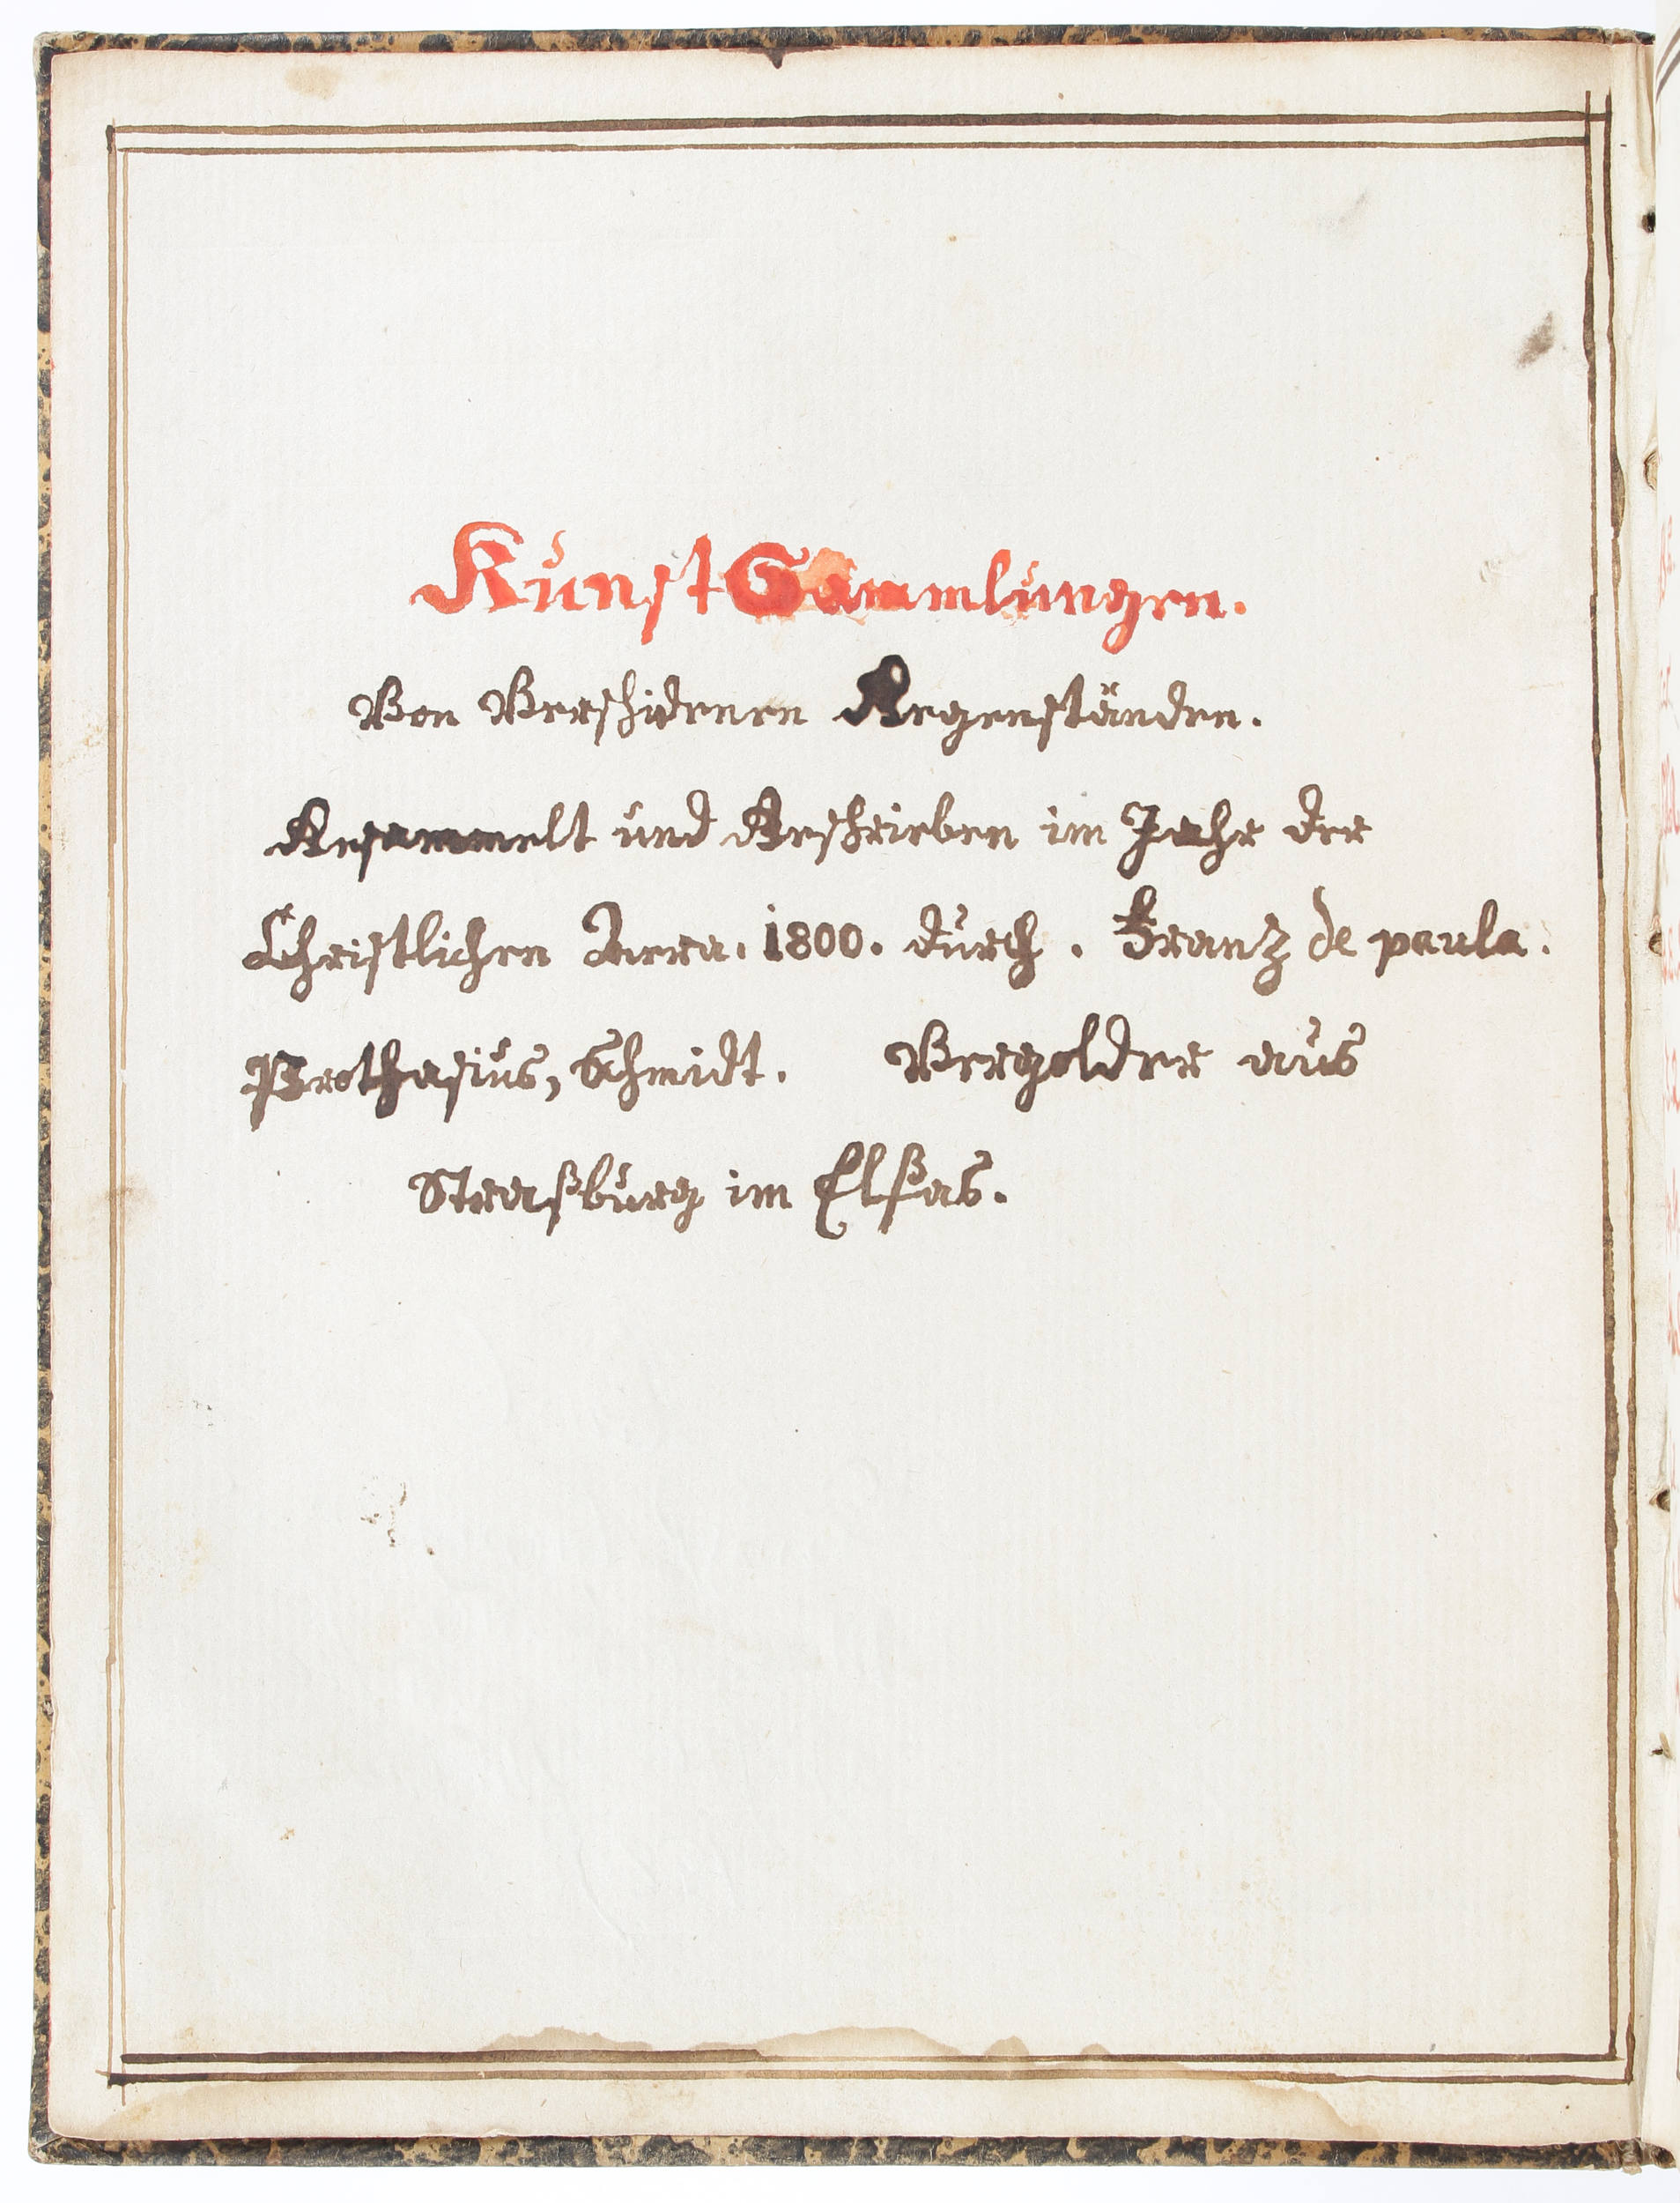 Kunst Sammlungen.
Von Vershidenen Gegenständen.
Gesammelt und Geshrieben im Jahr der
Christlichen Aera. 1800. durch. Franz de paula.
Prothasius, Schmidt. Vergolder aus
Straßburg im Elsas.